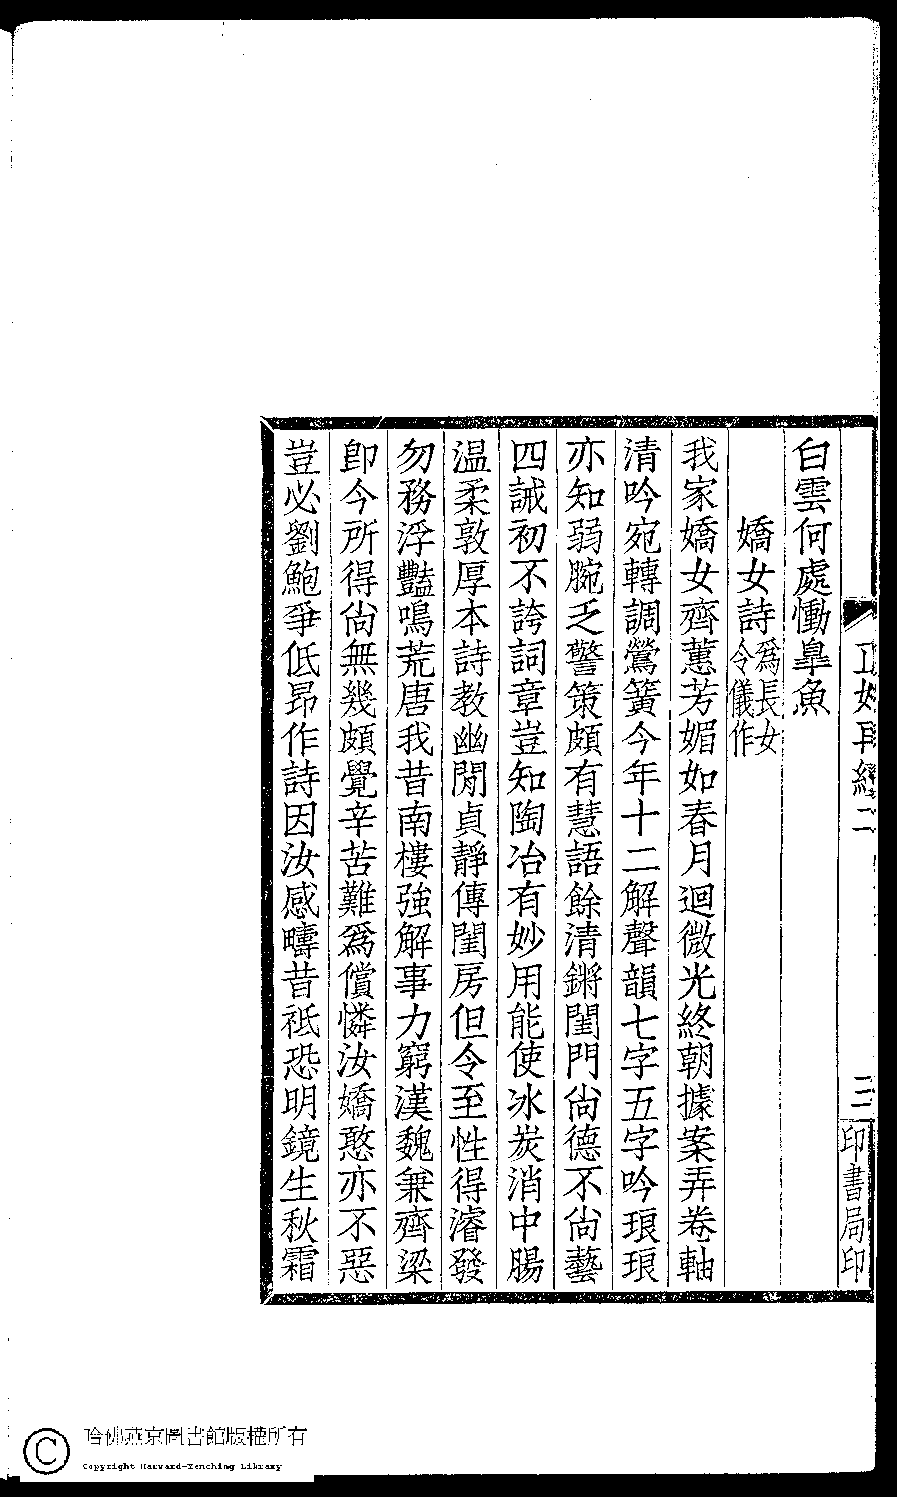 白雲何處慟臯魚
嬌女詩為長女令儀作
我家嬌女齊蕙芳媚如春月迴微光終朝據案弄卷軸
清吟宛轉調鶯簧今年十二解聲韻七字五字吟琅琅
亦知弱腕乏警策頗有慧語餘清鏘閨門尚德不尚藝
四誡初不誇詞章豈知陶冶有妙用能使冰炭消中腸
温柔敦厚本詩教幽閒貞靜傳閨房但令至性得濬發
勿務浮豔鳴荒唐我昔南樓強解事力窮漢魏兼齊梁
卽今所得尙無幾頗覺辛苦難爲償憐汝嬌憨亦不惡
豈必劉鮑爭低昂作詩因汝感疇昔祗恐明鏡生秋霜
再續二
三
印書局印
哈佛燕京圖書館版權所有
Copyright Harvard-Yenching Library